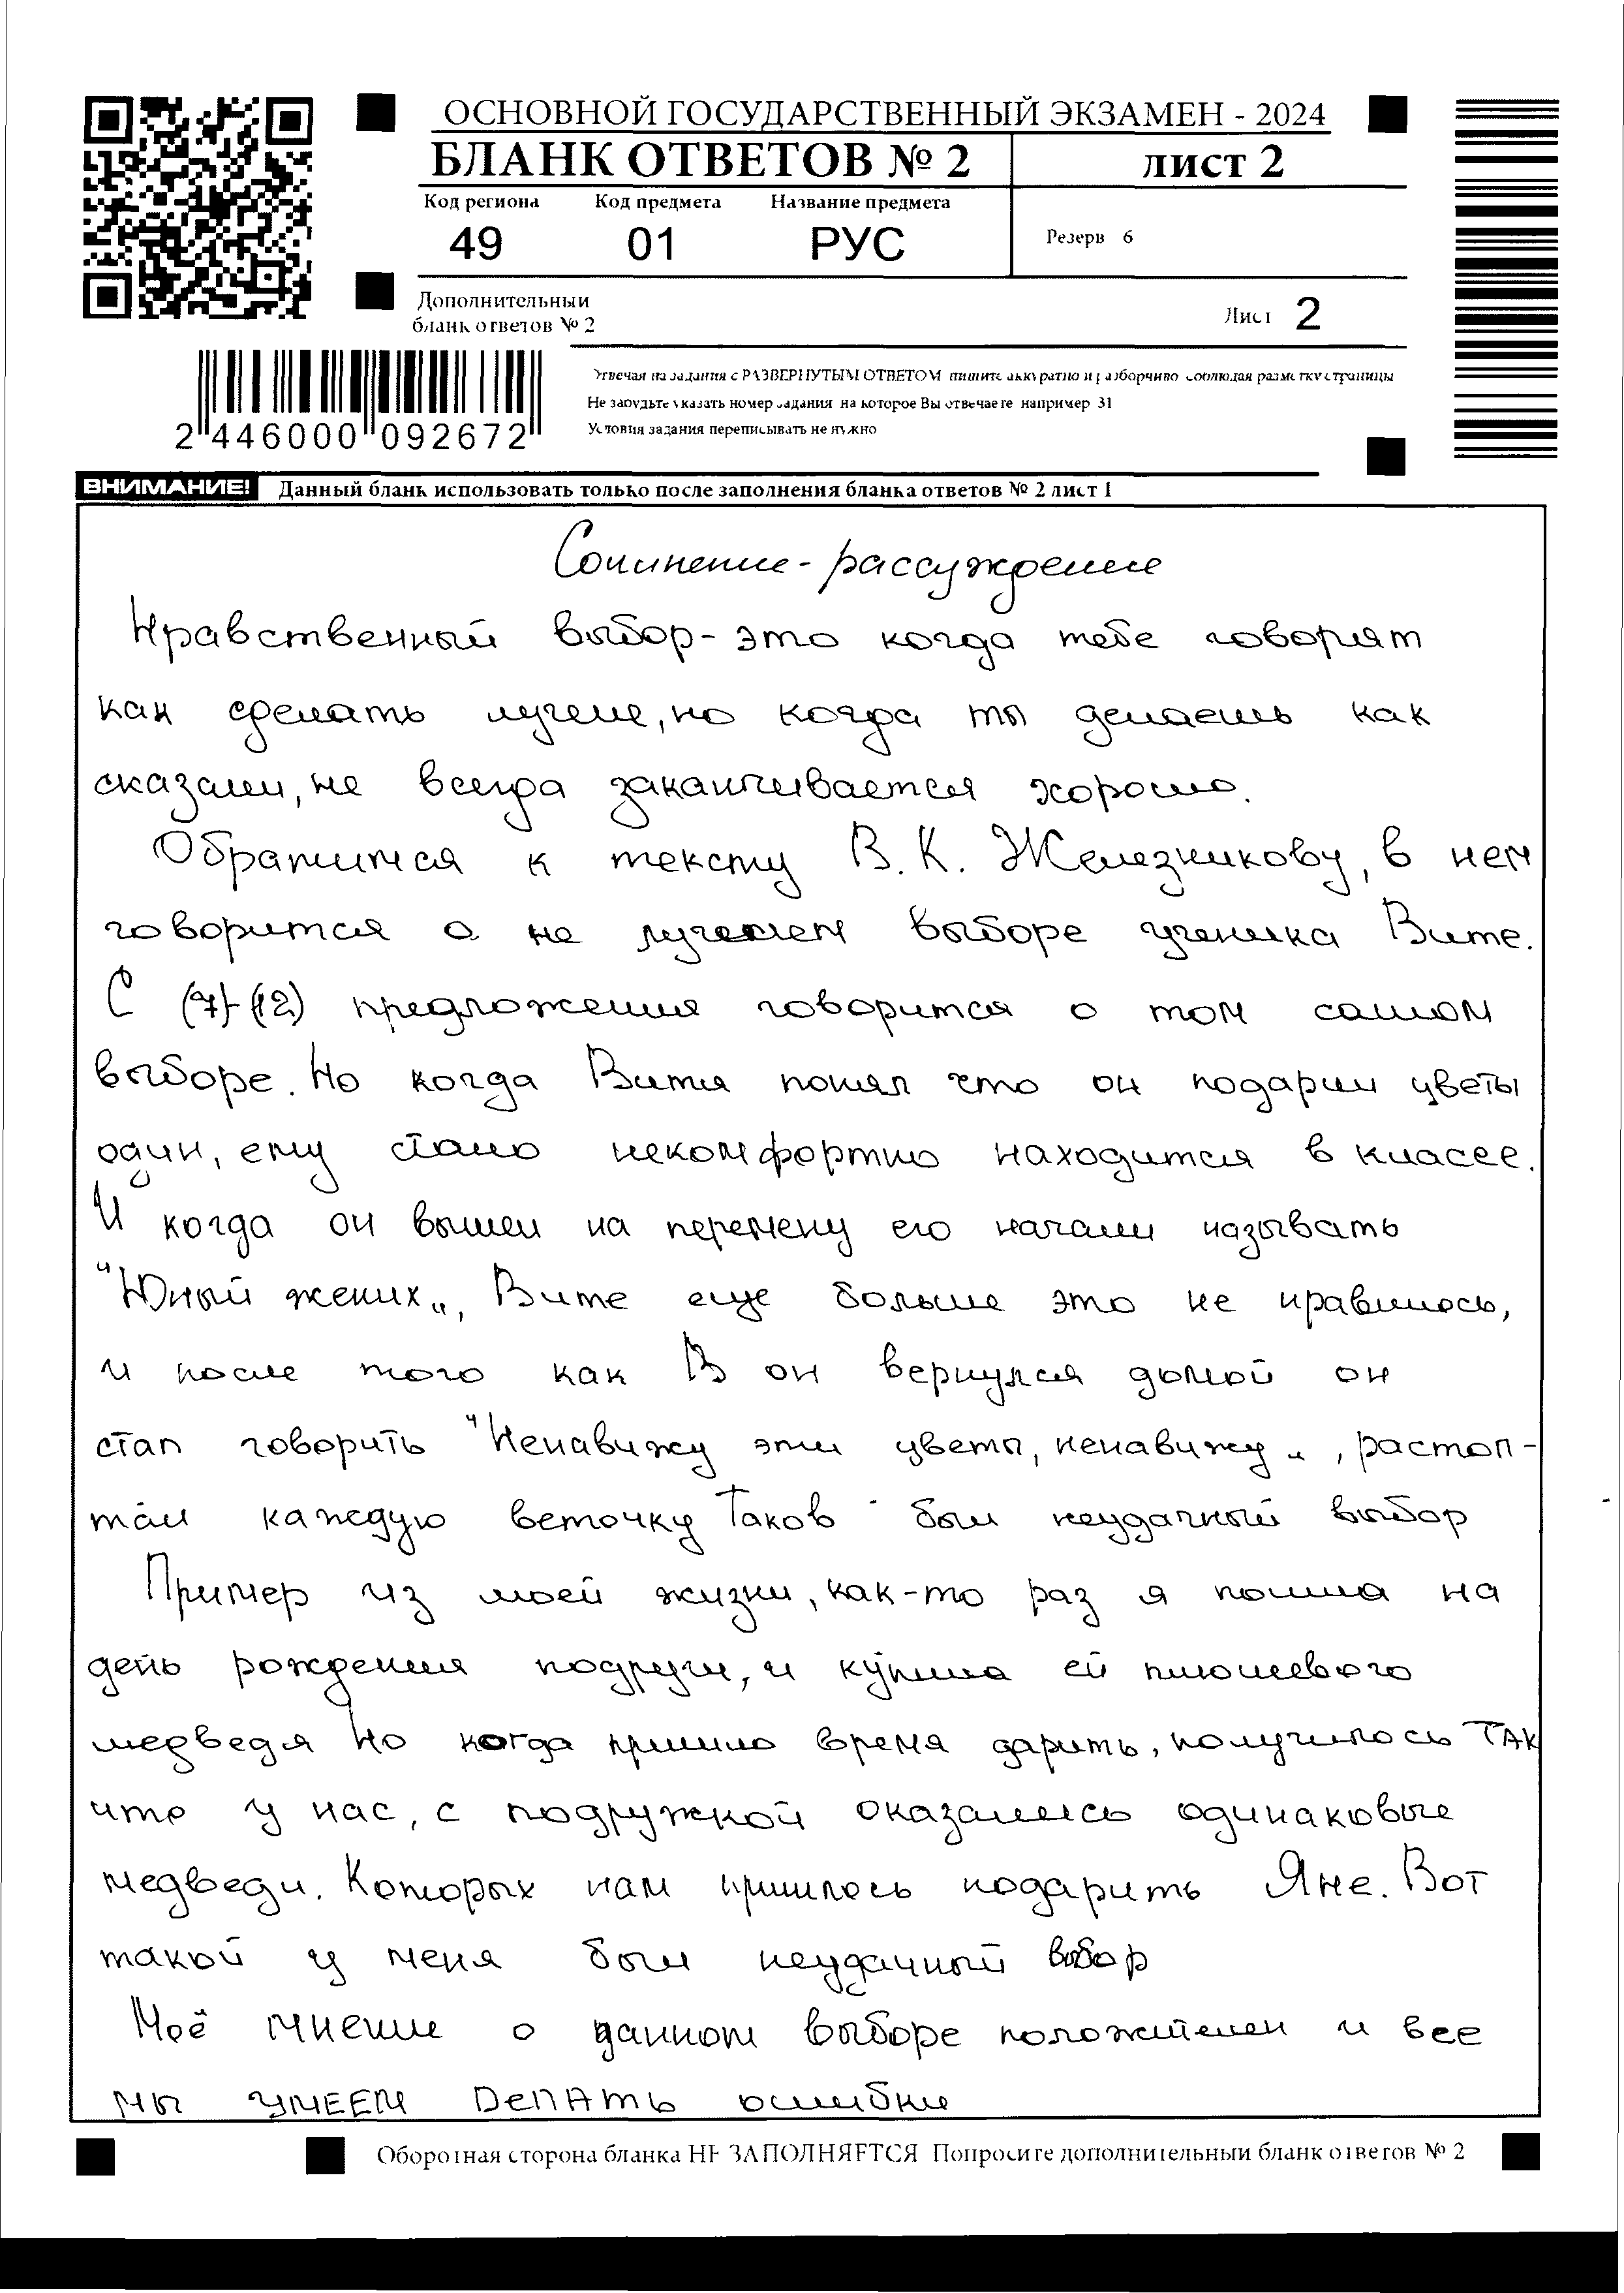 ОСНОВНОЙ ГОСУДАРСТВЕННЫЙ ЭКЗАМЕН - 2024
БЛАНК ОТВЕТОВ № 2 лист 2
Код региона Код предмета Название предмета
49 01 РУС
Резерв 6
Дополнительный
бланк ответов № 2
Лист 2
Отвечая на задания с РАЗВЕРНУТЫМ ОТВЕТОМ пишите аккуратно и разборчиво соблюдая разметку страницы
Не забудьте указать номер задания на которое Вы отвечаете например 31
Условия задания переписывать не нужно
2 446000 092672
ВНИМАНИЕ! Данный бланк использовать только после заполнения бланка ответов № 2 лист 1
Сочинение-рассуждение
Нравственный выбор-это когда тебе говорят
как сделать лучше, но когда ты делаешь как
сказали, не всегда заканчивается хорошо.
Обратимся к тексту В.К. Железникову, в нем
говорится о не лучшем выборе ученика Вите.
С (7)-(12) предложения говорится о том самом
выборе. Но когда Витя понял что он подарил цветы
один, ему стало некомфортно находится в классе.
И когда он вышел на перемену его начали называть
"Юный жених„, Вите еще больше это не нравилось,
и после того как В он вернулся домой он
стал говорить "Ненавижу эти цветы, ненавижу„ , растоп-
тал каждую веточку Таков был неудачный выбор
Пример из моей жизни, как-то раз я пошла на
день рождения подруги, и купила ей плюшевого
медведя Но когда пришло время дарить, получилось ТАК
что у нас, с подружкой оказались одинаковые
медведи. Которых нам пришлось подарить Яне. Вот
такой у меня был неудачный вбор
Моё мнение о данном выборе положителен и все
мы УМЕЕМ ДЕЛАТЬ ошибки
Оборотная сторона бланка НЕ ЗАПОЛНЯЕТСЯ Попросите дополнительный бланк ответов № 2